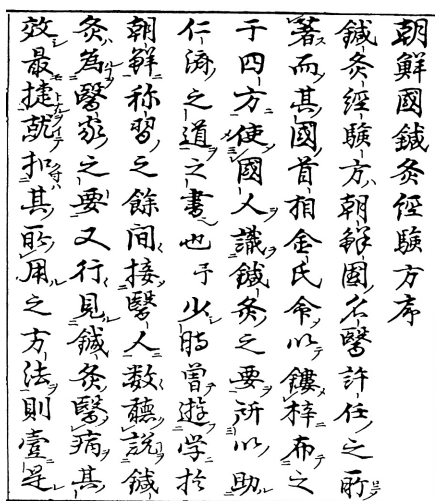 朝鮮國鍼灸經驗方序
鍼灸經驗方朝鮮國名醫許任之所
著而其國首相金氏命以鏤梓布之
于四方使國人識鍼灸之要所以助
仁濟之道之書也予少時曾遊学於
朝鮮称習之餘間接醫人数聽説鍼
灸為醫家之要又行見鍼灸醫病其
效最捷就扣其所用之方法則壹是